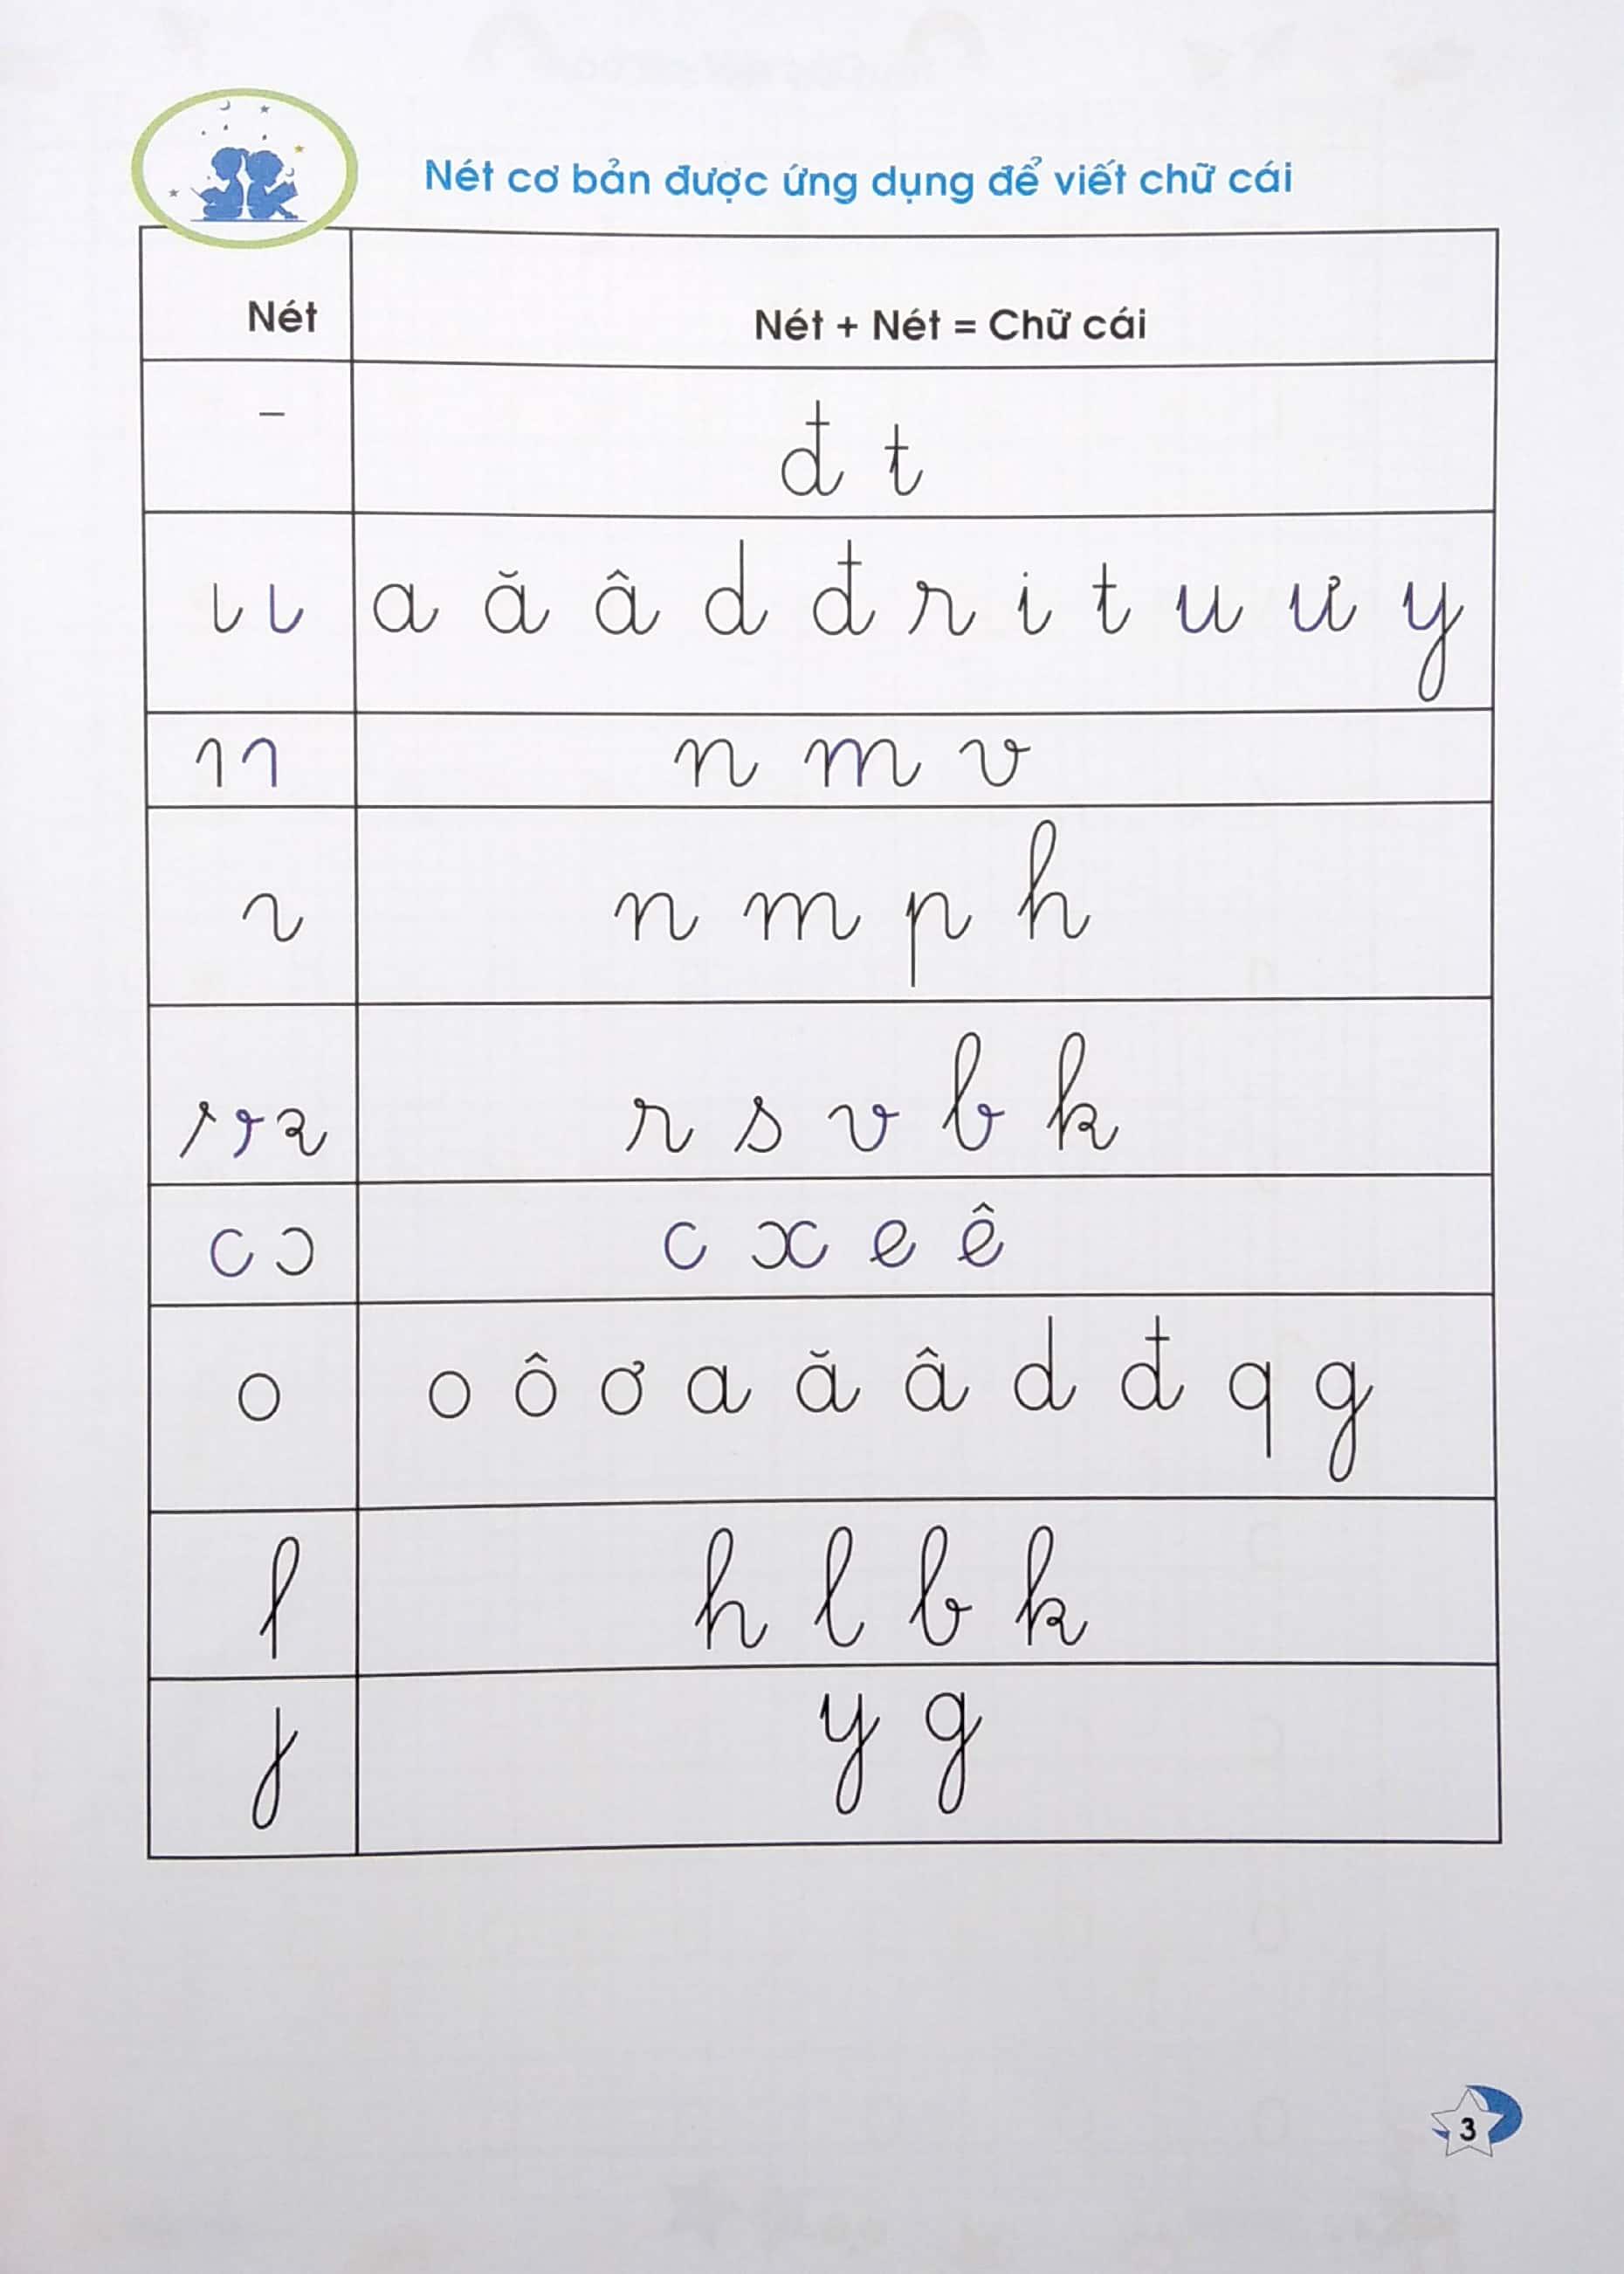 Nét cơ bản được ứng dụng để viết chữ cái
Nét
Nét + Nét = Chữ cái
–
đ t
a ă â d đ r i t u ư y
n m v
n m p h
r s v b k
c ɔ
c x e ê
o
o ô ơ a ă â d đ q g
h l b k
y g
3